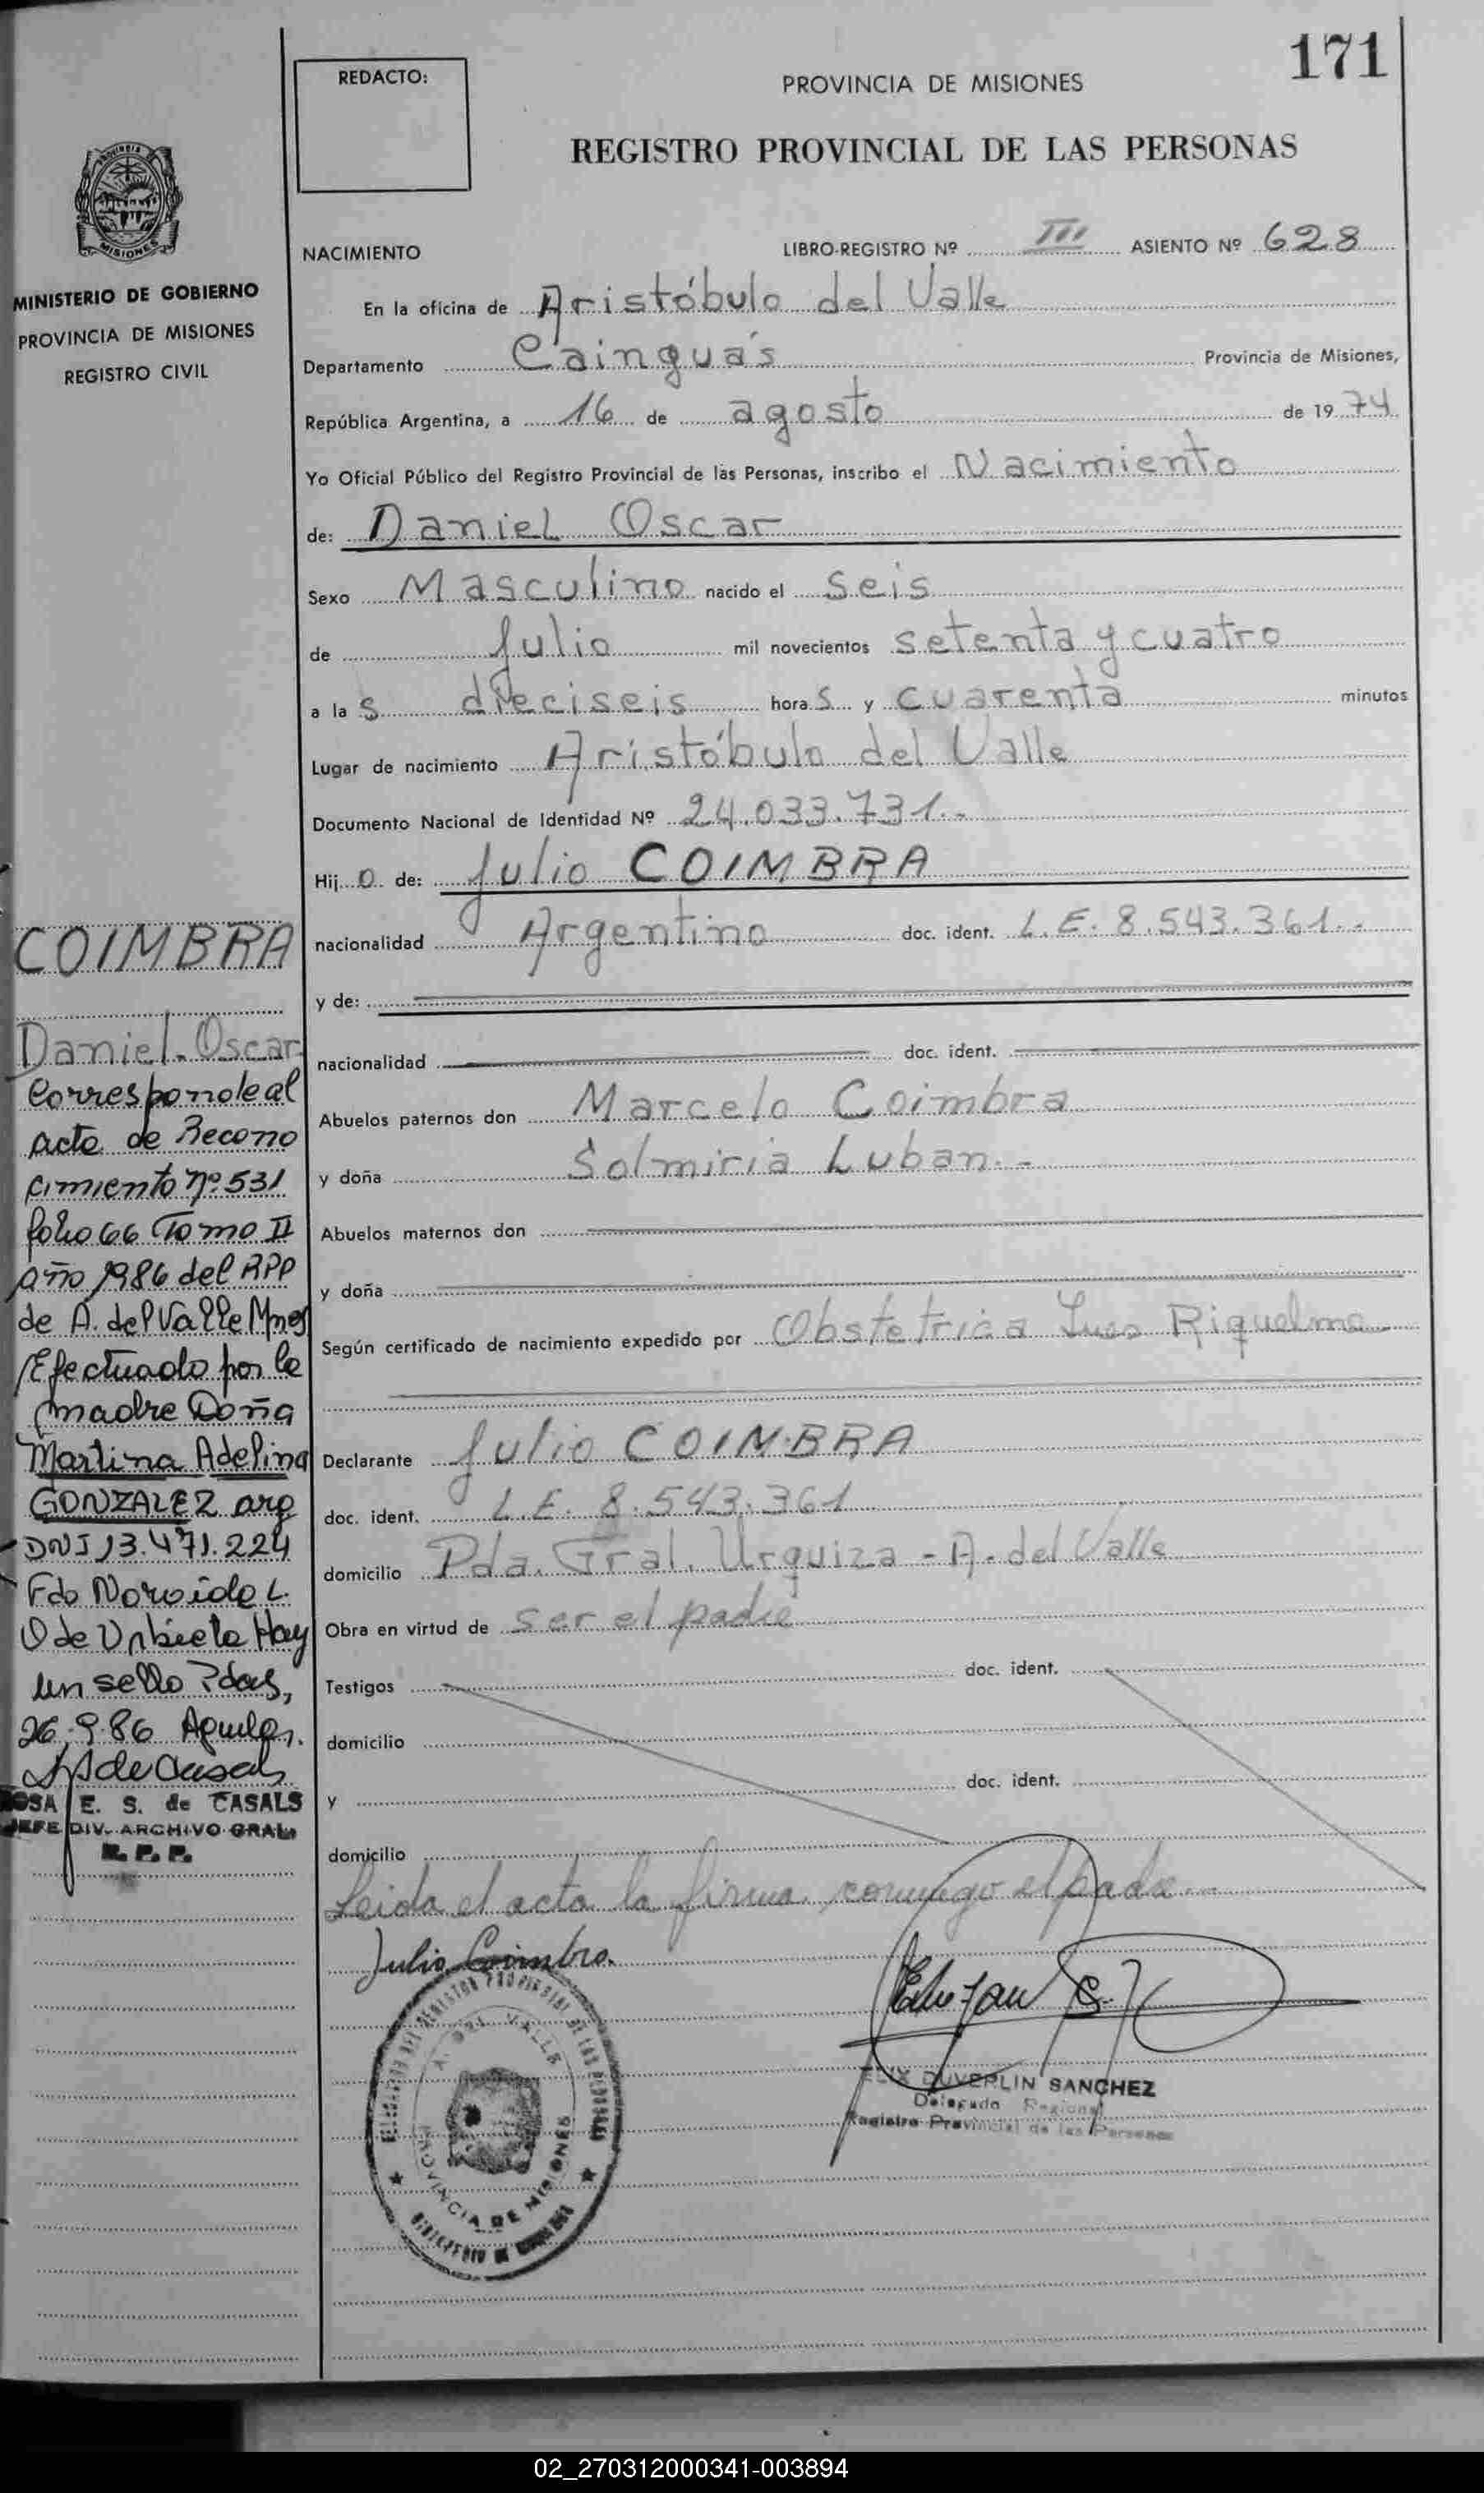 171
REDACTO:
PROVINCIA DE MISIONES
REGISTRO PROVINCIAL DE LAS PERSONAS
MISIONES
MINISTERIO DE GOBIERNO
PROVINCIA DE MISIONES
REGISTRO CIVIL
NACIMIENTO LIBRO-REGISTRO Nº III ASIENTO Nº 628
En la oficina de Aristóbulo del Valle
Departamento Cainguás Provincia de Misiones,
República Argentina, a 16 de agosto de 1974
Yo Oficial Público del Registro Provincial de las Personas, inscribo el Nacimiento
de: Daniel Oscar
Sexo Masculino nacido el seis
de Julio mil novecientos setenta y cuatro
a las dieciseis horas y cuarenta minutos
Lugar de nacimiento Aristóbulo del Valle
Documento Nacional de Identidad Nº 24.033.731.-
Hijo de: Julio COIMBRA
nacionalidad Argentino doc. ident. L.E. 8.543.361.-
y de:
nacionalidad doc. ident.
Abuelos paternos don Marcelo Coimbra
y doña Solmiria Luban.-
Abuelos maternos don
y doña
Según certificado de nacimiento expedido por Obstetrica Riquelme
Declarante Julio COINBRA
doc. ident. L.E. 8.543.361
domicilio Pda. Gral. Urquiza - A. del Valle
Obra en virtud de ser el padre
Testigos doc. ident.
domicilio
y doc. ident.
domicilio
Leida el acta la firma conmigo el padre.-
Julio Coimbra.
FELIX DUVERLIN SANCHEZ
Delegado Regional
Registro Provincial de las Personas
A. DEL VALLE
PROVINCIA DE MISIONES
COIMBRA
Daniel Oscar
Corresponde al
acta de Recono
cimiento nº 531
folio 66 Tomo II
año 1986 del RPP
de A. del Valle Mnes
Efectuado por la
madre Doña
Martina Adelina
GONZALEZ arg
DNI 13.471.224
Fdo L.
O de Urbieta Hay
un sello Pdas,
26.9.86
ROSA E. S. de CASALS
JEFE DIV. ARCHIVO GRAL.
R. P. P.
02_270312000341-003894